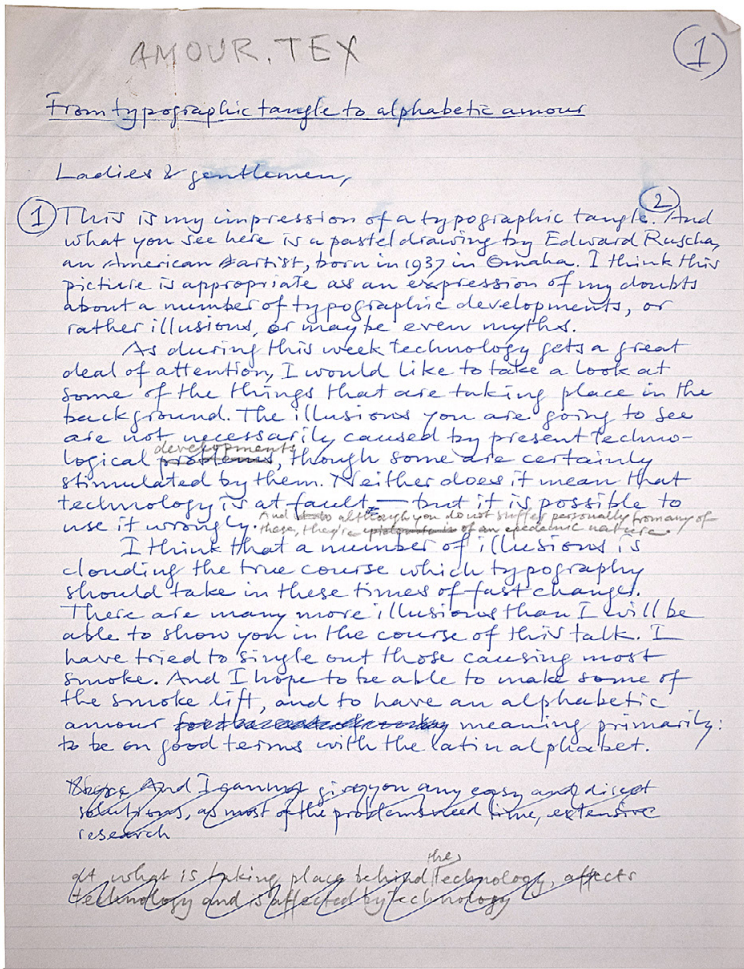 AMOUR.TEX
1
From typographic tangle to alphabetic amour
Ladies & gentlemen,
1 This is my impression of a typographic tangle. 2 And
what you see here is a pastel drawing by Edward Ruscha,
an American artist, born in 1937 in Omaha. I think this
picture is appropriate as an expression of my doubts
about a number of typographic developments, or
rather illusions, or maybe even myths.
As during this week technology gets a great
deal of attention, I would like to take a look at
some of the things that are taking place in the
background. The illusions you are going to see
are not necessarily caused by present techno-
developments
logical problems, though some are certainly
stimulated by them. Neither does it mean that
technology is at fault — but it is possible to
use it wrongly.
And also although you do not suffer personally from any of
these, they're of an epidemic nature
I think that a number of illusions is
clouding the true course which typography
should take in these times of fast changes.
There are many more illusions than I will be
able to show you in the course of this talk. I
have tried to single out those causing most
smoke. And I hope to be able to make some of
the smoke lift, and to have an alphabetic
amour meaning primarily:
to be on good terms with the latin alphabet.
And I cannot give you any easy and direct
solutions, as most of the problems need time, extensive
research
the
at what is taking place behind technology, affects
technology and is affected by technology